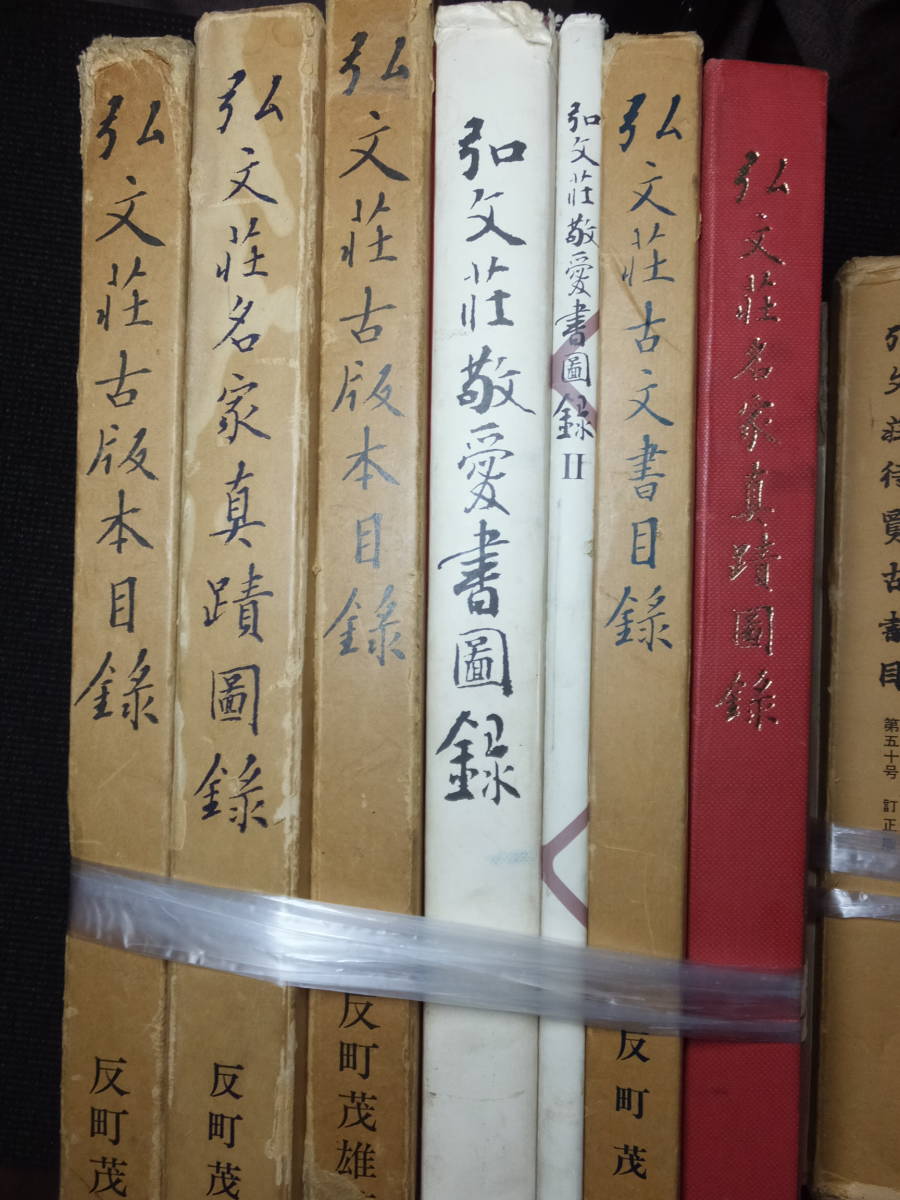 弘文荘古版本目録
反町茂
弘文荘名家真蹟圖録
反町茂
弘文荘古版本目録
反町茂雄
弘文荘敬愛書圖録
弘文荘敬愛書圖録 II
弘文荘古文書目録
反町茂
弘文荘名家真蹟圖録
弘文荘待賈古書目
第五十号 訂正